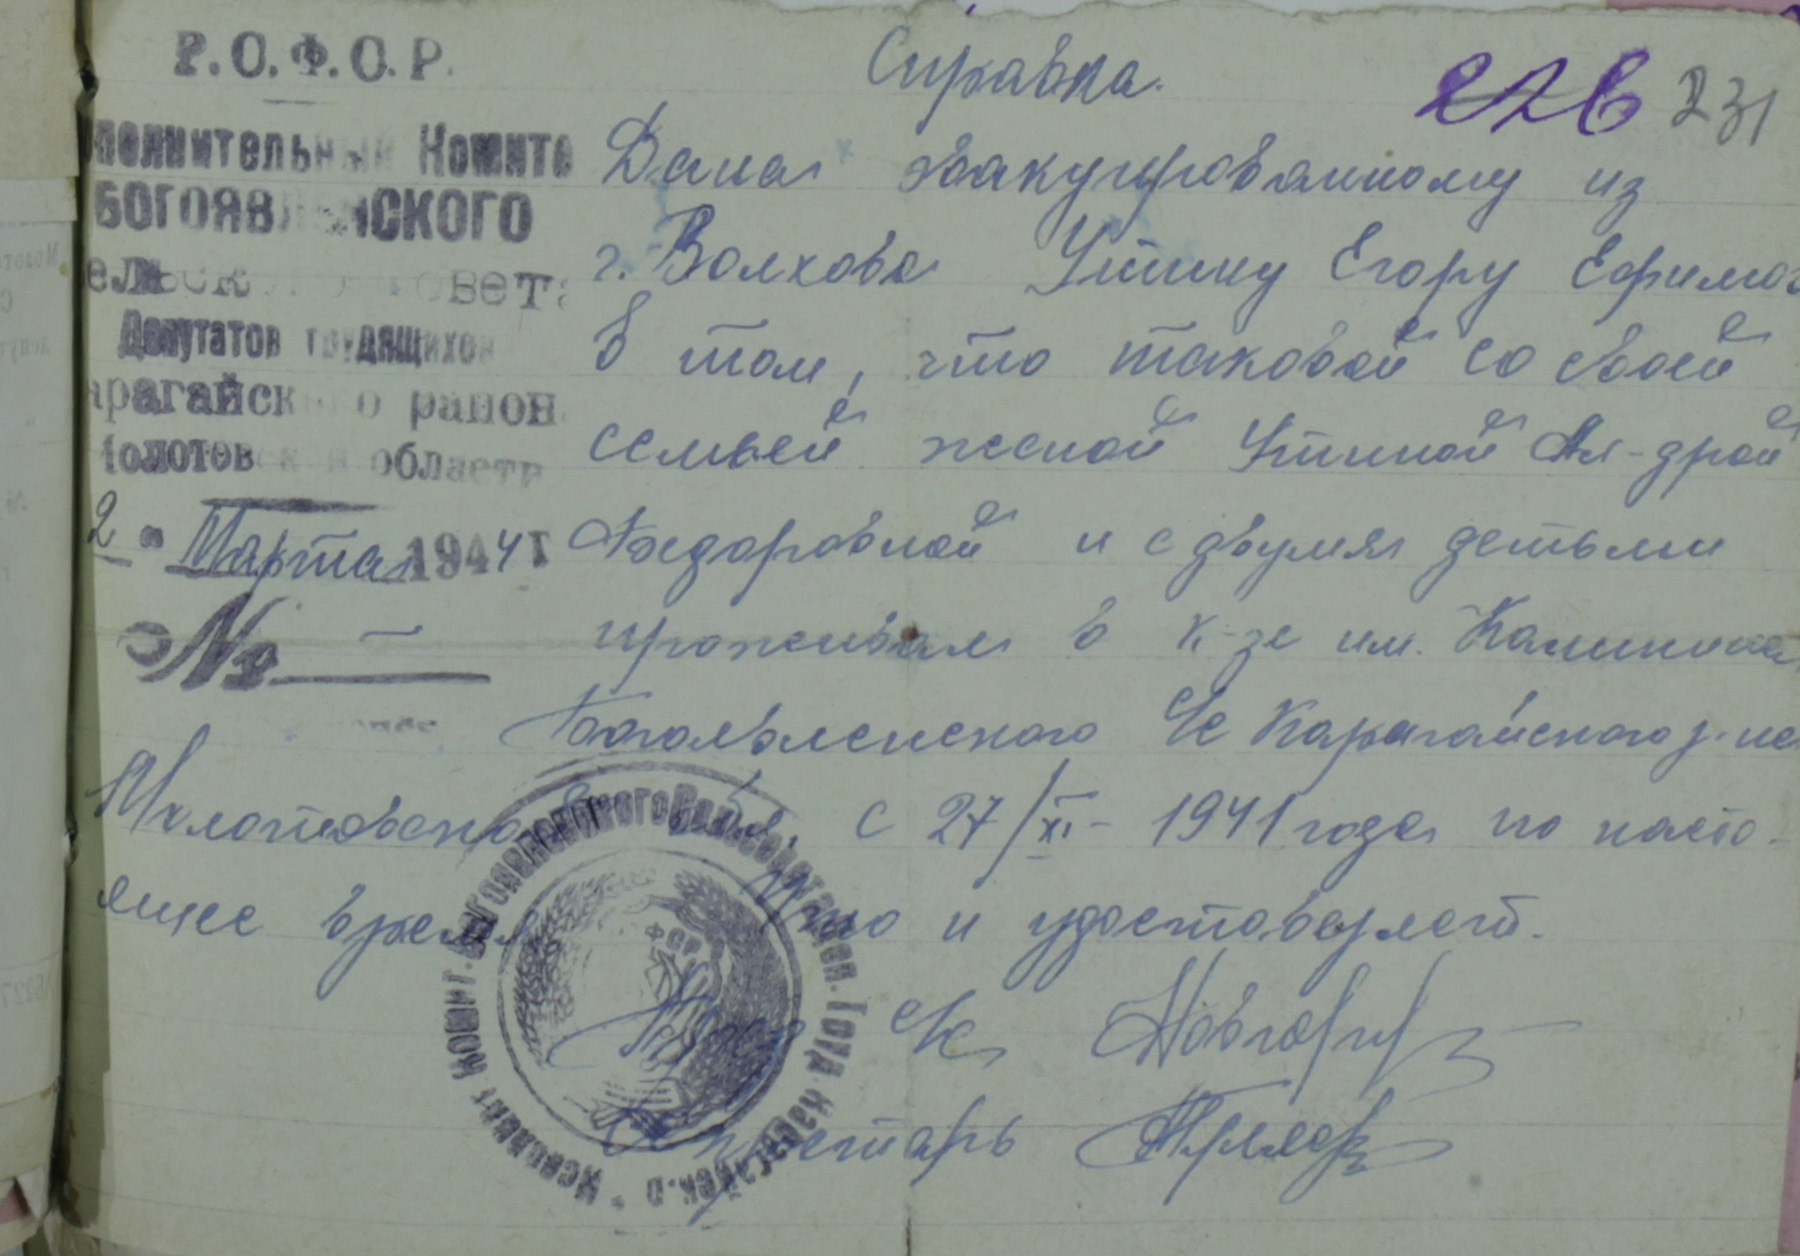 Р.С.Ф.С.Р.
Справка.
226 231
полнительный Комите
БОГОЯВЛЕНСКОГО
ельского совета
Депутатов трудящихся
арагайского район
Молотовской области
2 - Марта 1944 г
№ —
Дана эвакуированному из
г. Волхова Утину Егору Ефимов
в том, что таковой со своей
семьей женой Утиной Ал-дрой
Федоровной и с двумя детьми
проживал в к-зе им. Калинина
Богоявленского с/с Карагайского р-на
Молотовской обл. с 27/XI- 1941 года по насто-
ящее время что и удостоверяет.
Пред с/с
Секретарь
Исполнит. Комит. Богоявленского Сельсовета Деп. Труд. Карагайск. р.
РСФСР